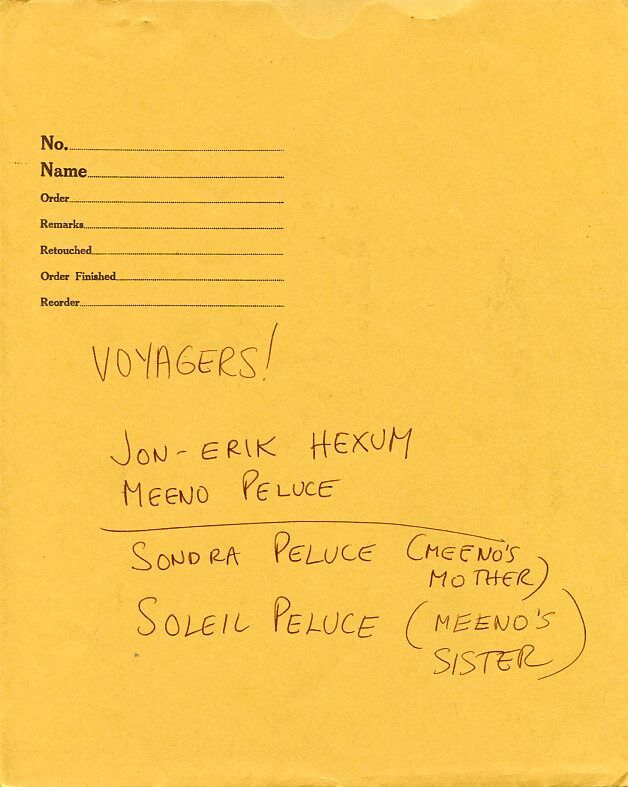 No.
Name
Order
Remarks
Retouched
Order Finished
Reorder
VOYAGERS!
JON-ERIK HEXUM
MEENO PELUCE
SONDRA PELUCE (MEENO'S
MOTHER)
SOLEIL PELUCE (MEENO'S
SISTER)